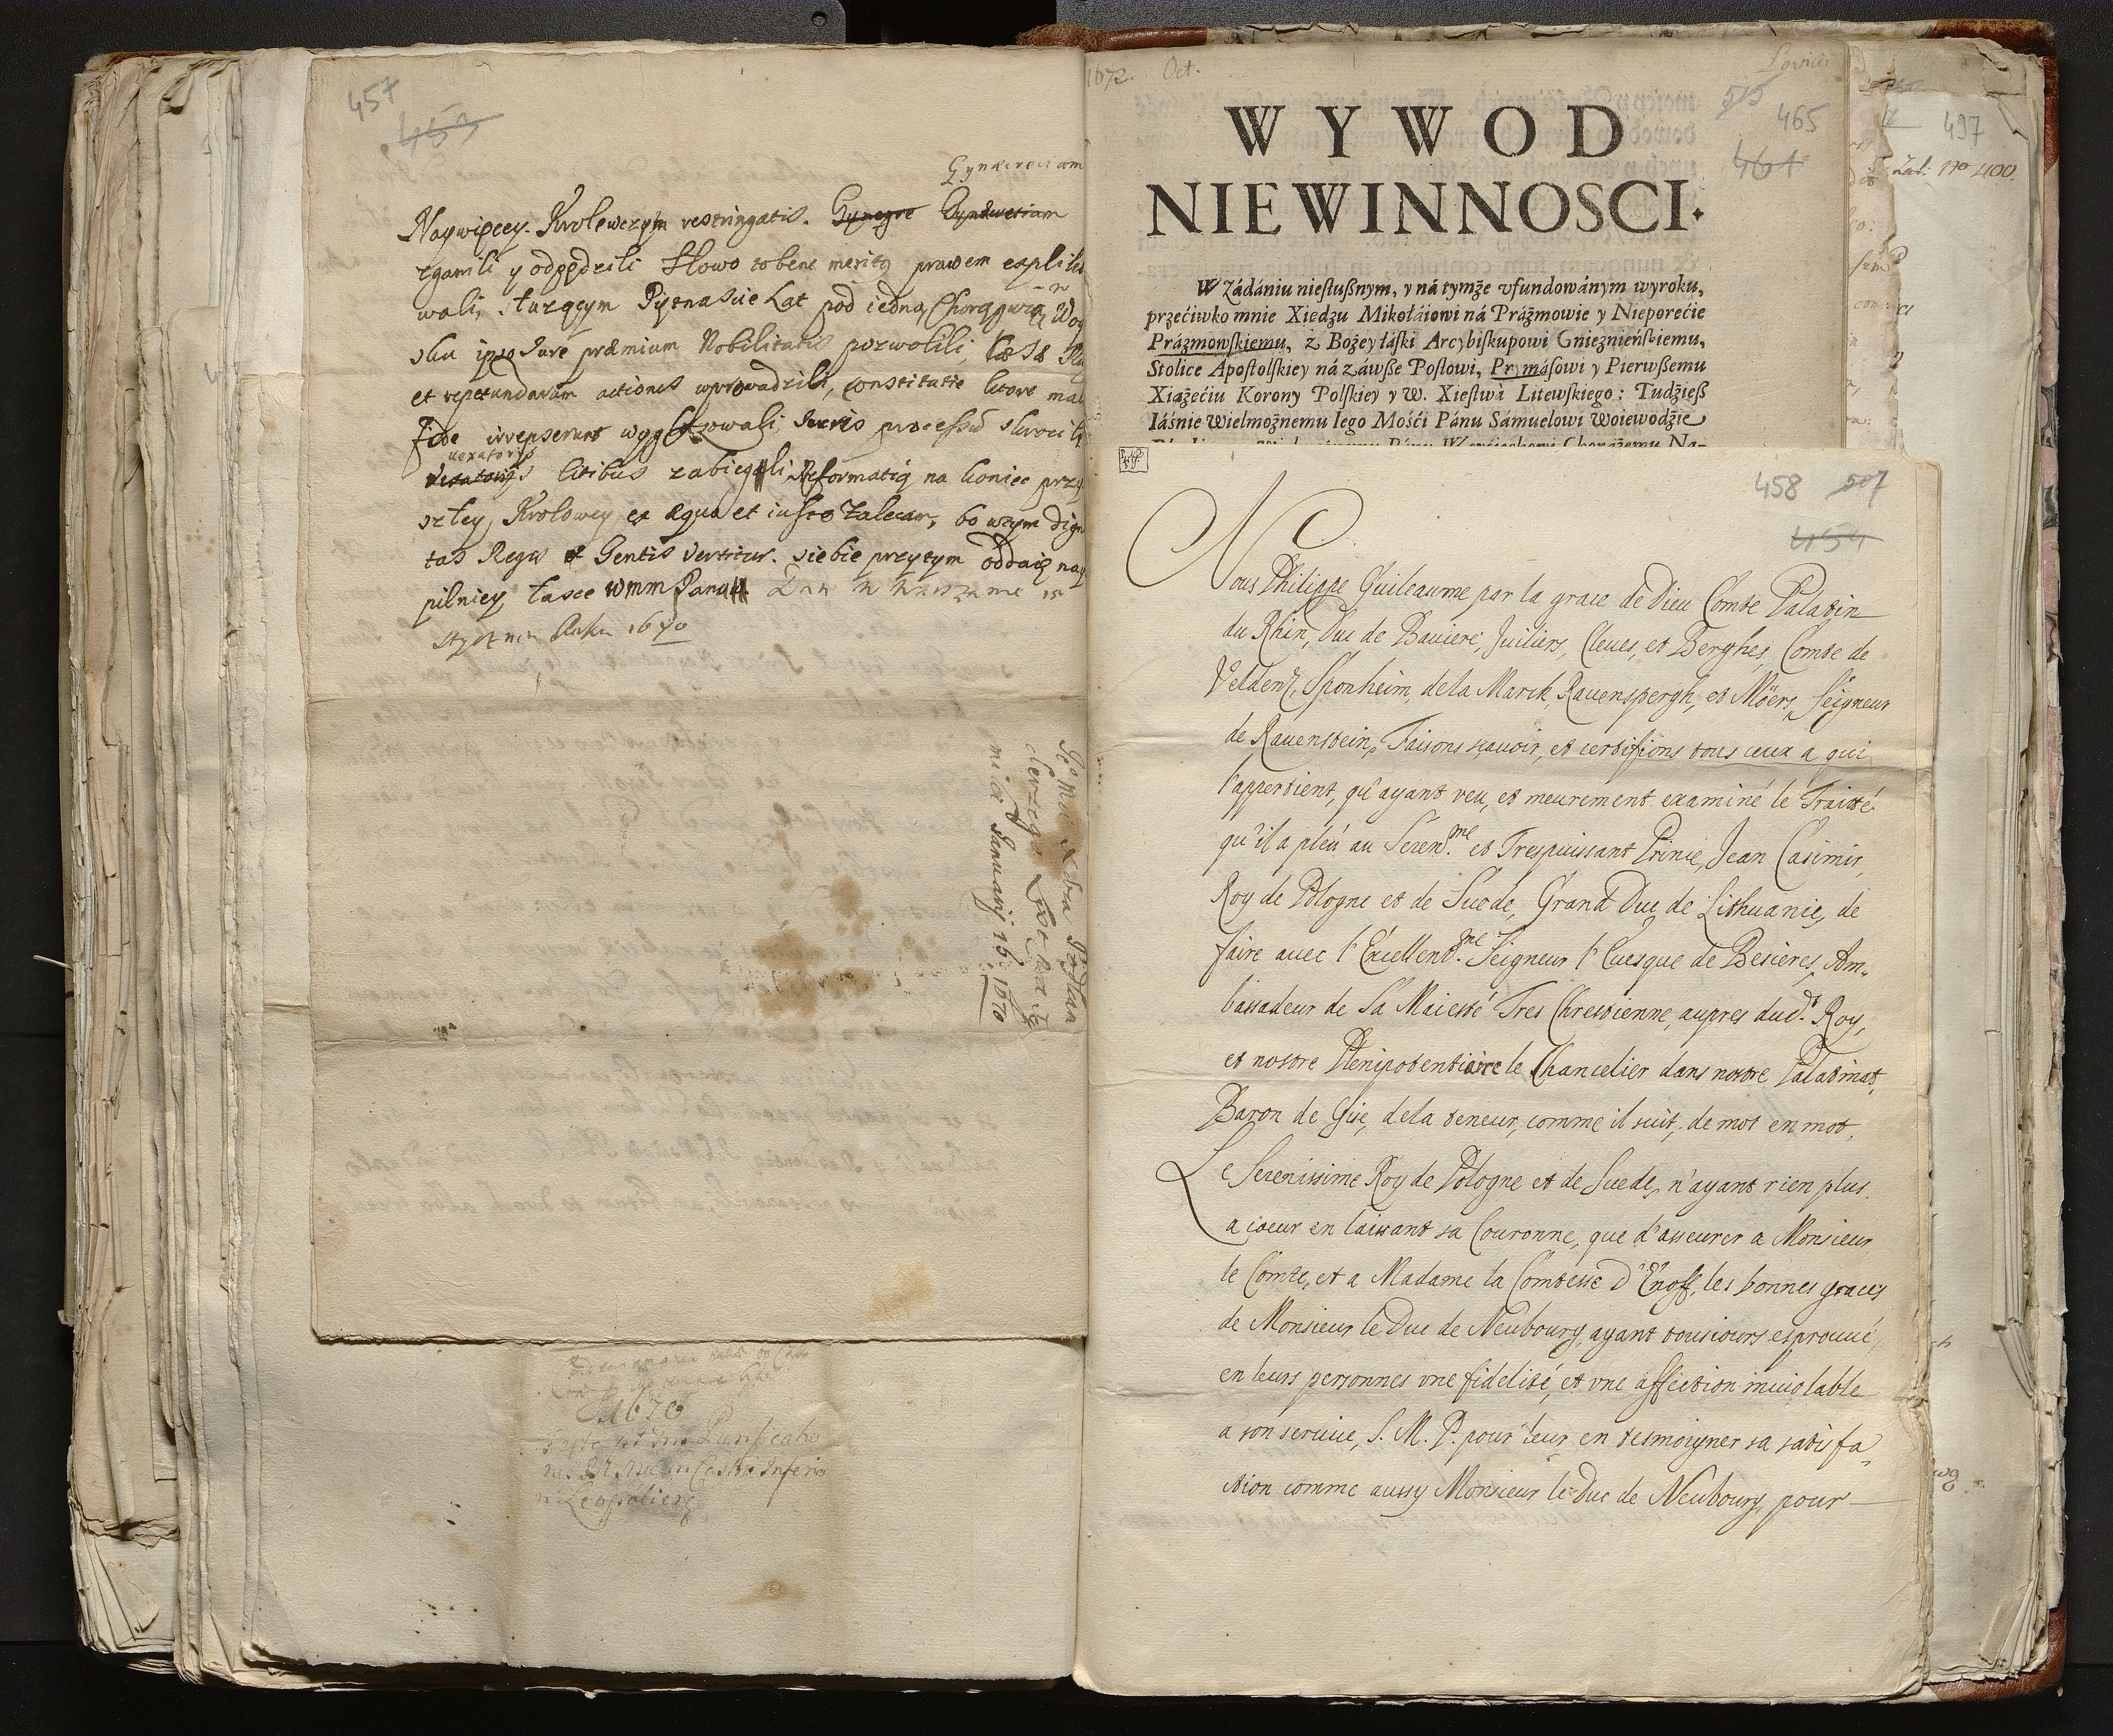 457
453
Gynaeceum
Naywięcey. Krolewczym restringatis. Gynegre Gynaecetiam
zganili y odpędzili Słowo to bene meritą prawem expliko
wali, słuzącym Piętnascie Lat pod iedną Chorągwią w Woy
sku ipso Iure præmium Nobilitatis pozwolili,
et repetundarum actiones wprowadzili, constitutie ktore mala
fide irrepserunt wyglozowali, Iuris processu skrocili
vexatorys
litibus zabiegali, Reformatią na koniec przy
szłey Krolowey ex æquo et iusto zalecam, bo wtym digni
tas Regia et Gentis vertitur. siebie przytym oddaię nay
pilniey łasce wmm Pana
stycznia Roku 1670
Januarij 15. 1670
1670
Leopolien
1672. Oct.
515
465
461
WYWOD
NIEWINNOSCI.
W Zádániu niesłusznym, y ná tymże vfundowánym wyroku,
przećiwko mnie Xiedzu Mikołáiowi ná Práżmowie y Nieporećie
Prázmowskiemu, z Bożey łáski Arcybiskupowi Gnieznieńskiemu,
Stolice Apostolskiey ná záwsze Posłowi, Prymásowi y Pierwszemu
Xiążećiu Korony Polskiey y W. Xiestwá Litewskiego: Tudzież
Iáśnie Wielmożnemu Iego Mośći Pánu Sámuelowi Woiewodźie
497
Zal. No 400.
458 507
454
Nous Philippe Guileaume par la grace de Dieu Comte Palatin
du Rhin, Duc de Baviere, Juiliers, Cleues, et Berghes, Comte de
Veldenz, Sponheim, de la Marck, Rauenspergh, et Möers, Seigneur
de Rauenstein, Faisons sçauoir, et certifions tous ceux a qui
l'appertient, qu'ayant veu, et meurement examiné le Traitté
qu'il a pleu au Seren.me et Trespuissant Prince, Jean Casimir,
Roy de Pologne et de Suede, Grand Duc de Lithuanie, de
faire auec l'Excellent.me Seigneur l'Euesque de Besieres, Am„
bassadeur de Sa Maiesté Tres Chrestienne, aupres dud.t Roy,
et nostre Plenipotentiaire le Chancelier dans nostre Palatinat,
Baron de Gise, dela teneur, comme il suit, de mot en mot.
Le Serenissime Roy de Pologne et de Suede, n'ayant rien plus
a coeur en laissant sa Couronne, que d'asseurer a Monsieur
le Comte, et a Madame la Comtesse d'Enoff, les bonnes graces
de Monsieur le Duc de Neubourg, ayant tousiours esprouué,
en leurs personnes vne fidelité, et vne affection inuiolable
a son seruice, S. M. P. pour leur en tesmoigner sa satisfa„
ction comme aussy Monsieur le Duc de Neubourg, pour